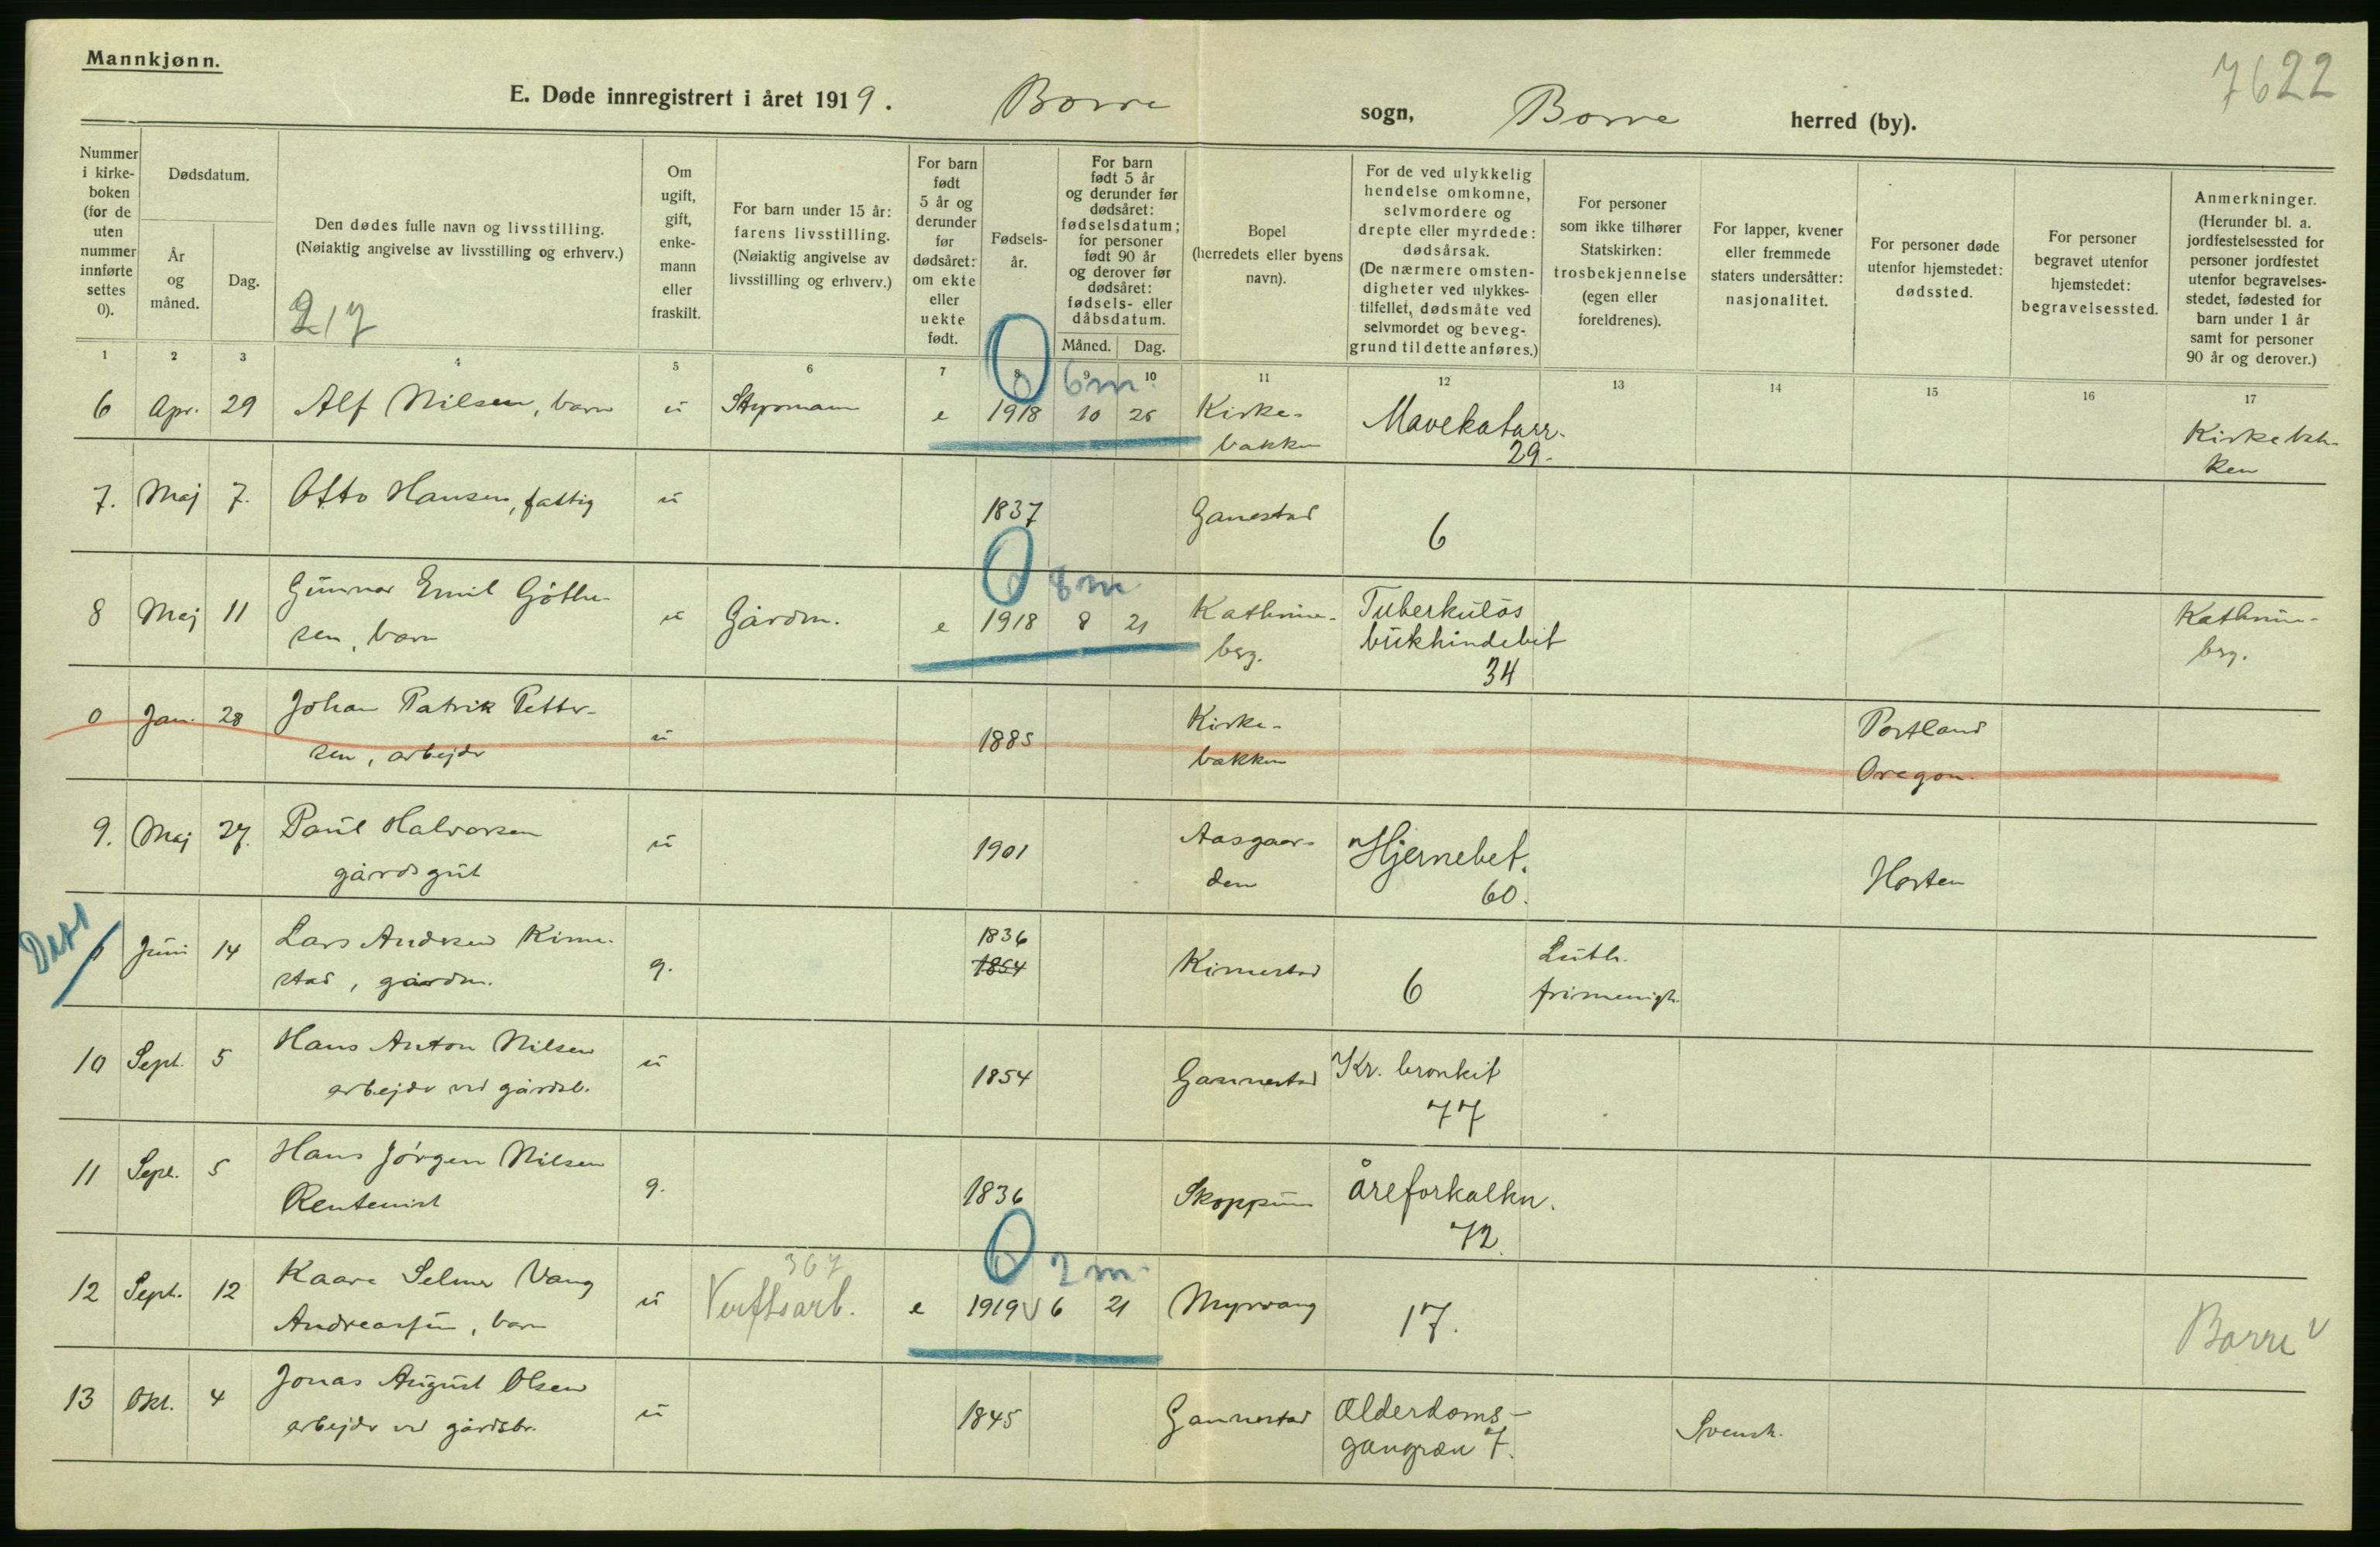 Mannkjønn.
7622
E. Døde innregistrert i året 1919. Borre sogn, Borre herred (by).
Nummer
i kirke-
boken
(for de
uten
nummer
innførte
settes
0).
Dødsdatum.
År
og
måned.
Dag.
Den dødes fulle navn og livsstilling.
(Nøiaktig angivelse av livsstilling og erhverv.)
217
Om
ugift,
gift,
enke-
mann
eller
fraskilt.
For barn under 15 år:
farens livsstilling.
(Nøiaktig angivelse av
livsstilling og erhverv.)
For barn
født
5 år og
derunder
før
dødsåret:
om ekte
eller
uekte
født.
Fødsels-
år.
For barn
født 5 år
og derunder før
dødsåret:
fødselsdatum;
for personer
født 90 år
og derover før
dødsåret:
fødsels- eller
dåbsdatum.
Måned. Dag.
Bopel
(herredets eller byens
navn).
For de ved ulykkelig
hendelse omkomne,
selvmordere og
drepte eller myrdede:
dødsårsak.
(De nærmere omsten-
digheter ved ulykkes-
tilfellet, dødsmåte ved
selvmordet og beveg-
grund til dette anføres.)
For personer
som ikke tilhører
Statskirken:
trosbekjennelse
(egen eller
foreldrenes).
For lapper, kvener
eller fremmede
staters undersåtter:
nasjonalitet.
For personer døde
utenfor hjemstedet:
dødssted.
For personer
begravet utenfor
hjemstedet:
begravelsessted.
Anmerkninger.
(Herunder bl. a.
jordfestelsessted for
personer jordfestet
utenfor begravelses-
stedet, fødested for
barn under 1 år
samt for personer
90 år og derover.)
1 2 3 4 5 6 7 8 9 10 11 12 13 14 15 16 17
0 6 m
6 Apr. 29 Alf Nilsen, barn u Styrmann e 1918 10 26 Kirke- Mavekatarr. Kirkebak-
bakken 29. ken
7. Maj 7. Otto Hansen, fattig u 1837 Ganestad 6
0 8 m
8 Maj 11 Gunnar Emil Gøthe- u Gårdm. e 1918 8 21 Kathrine- Tuberkuløs Kathrine-
sen, barn berg. bukhindebet berg.
34
0 Jan. 28 Johan Patrik Petter- u 1885 Kirke- Portland
sen, arbejder bakken Oregon.
9. Maj 27. Paul Halvorsen u 1901 Aasgaar- Hjernebet. Horten
gårdsgut den 60.
0 Juni 14 Lars Andersen Kirne- g. 1836 Kirnestad 6 Luth.
stad, gårdm. 1854 frimenigh.
10 Sept. 5 Hans Anton Nilsen u 1854 Gannestad Kr. bronkit
arbejder ved gårdsb. 77
11 Sept. 5 Hans Jørgen Nilsen g. 1836 Skoppum åreforkalkn.
Rentenist 72.
367 0 2 m
12 Sept. 12 Kaare Selmer Vang u Verftsarb. e 1919 v 6 21 Myrvang 17. Borre v
Andreassen, barn
13 Okt. 4 Jonas August Olsen u 1845 Gannestad Alderdoms- Svensk.
arbejder ved gårdsbr. gangræn 7.